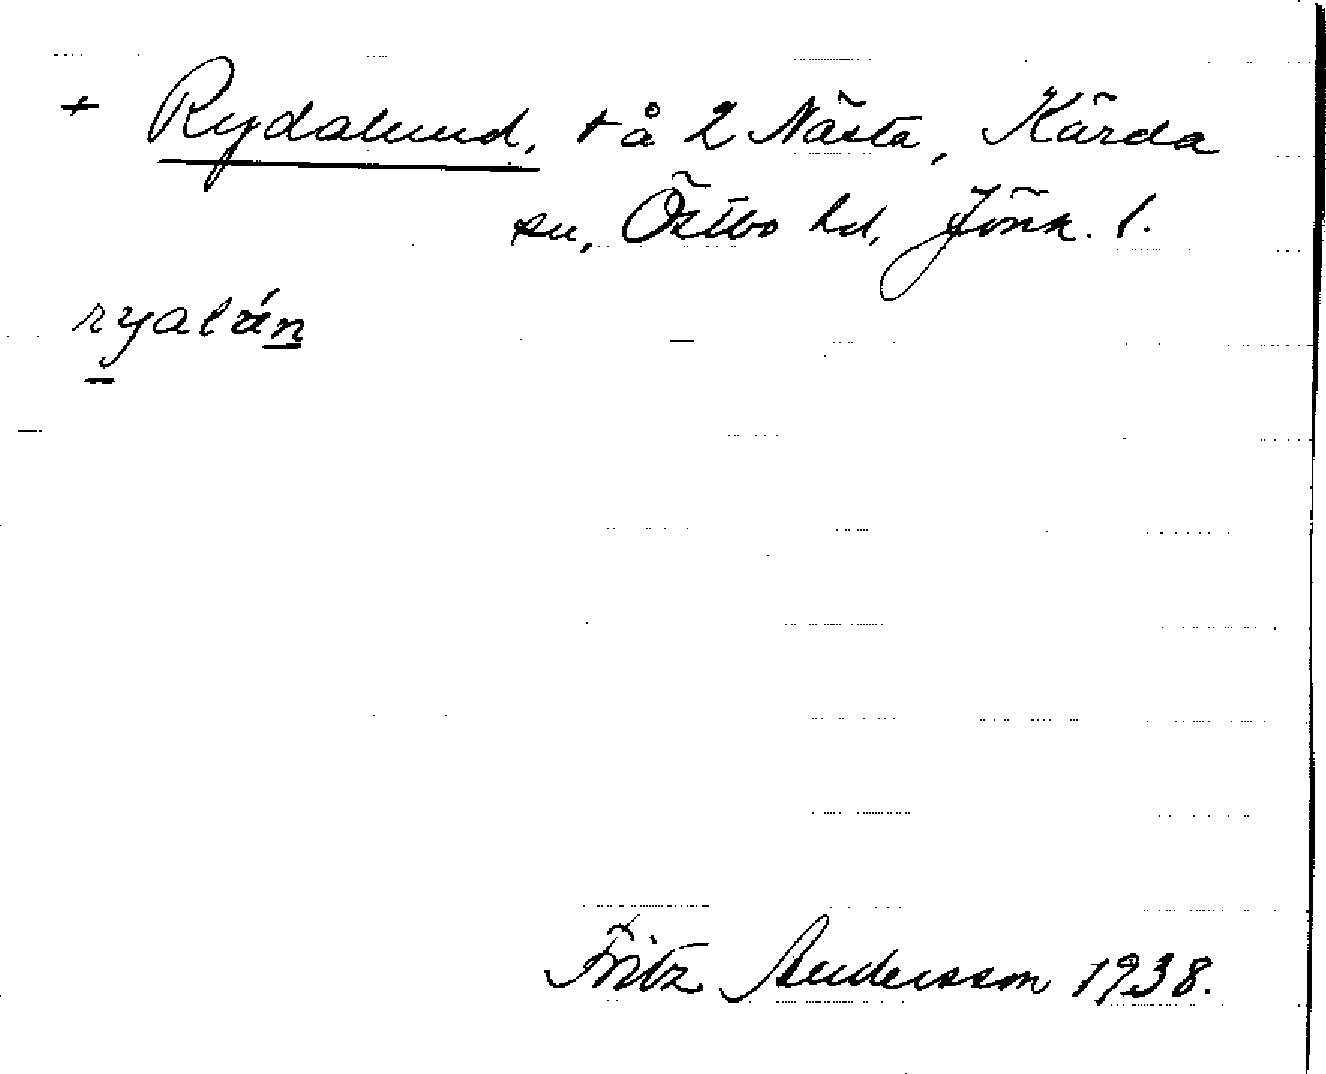 + Rydalund, t å 2 Nästa, Kärda
sn, Östbo hd, Jönk. l.
ryalún
Fritz Andersson 1938.